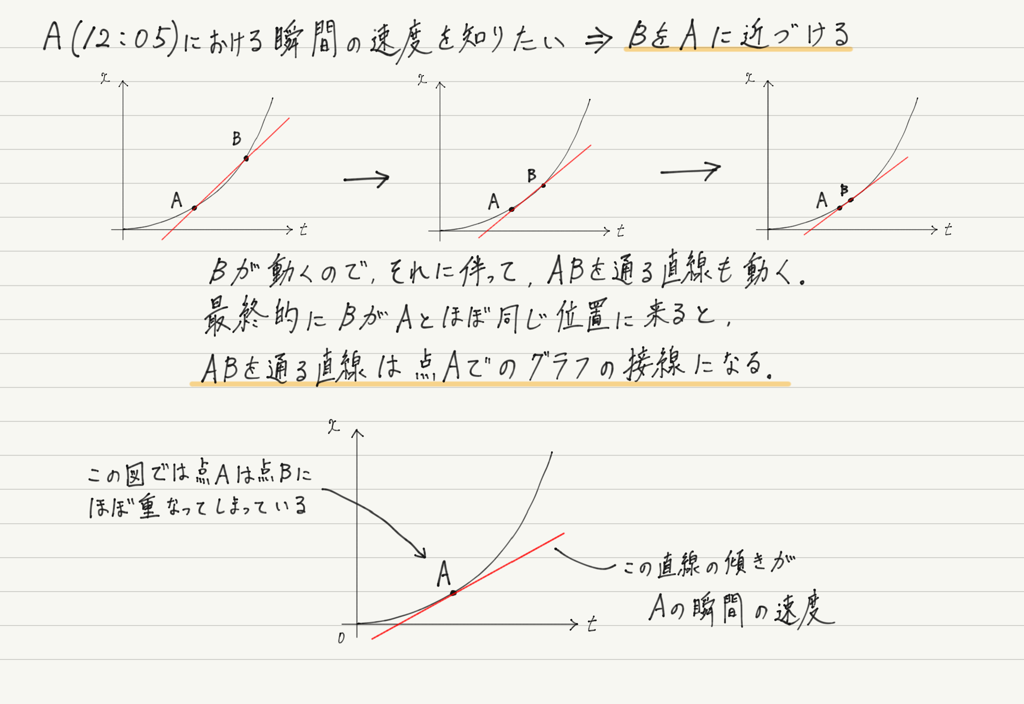 A(12:05)における瞬間の速度を知りたい ⇒ BをAに近づける
x
B
A
t
x
B
A
t
x
B
A
t
Bが動くので,それに伴って,ABを通る直線も動く.
最終的にBがAとほぼ同じ位置に来ると,
ABを通る直線は点Aでのグラフの接線になる.
x
この図では点Aは点Bに
ほぼ重なってしまっている
A
この直線の傾きが
Aの瞬間の速度
t
0